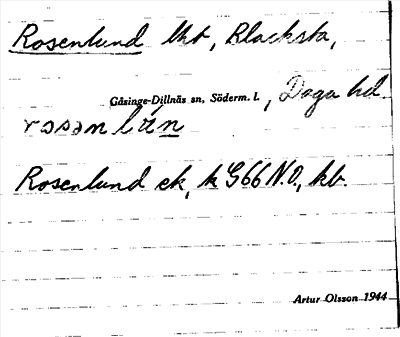 Rosenlund lht, Blacksta,
Gåsinge-Dillnäs sn, Söderm. l., Daga hd
Rosenlund ek, k G66 N.O., kb.
Artur Olsson 1944